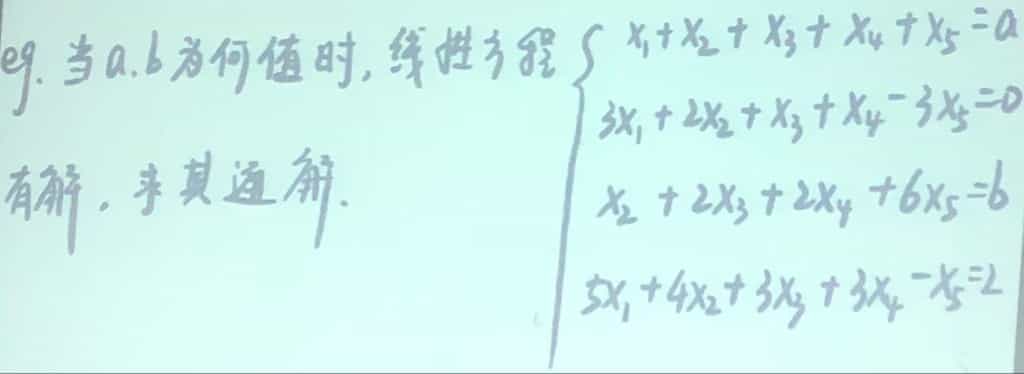 eg. 当a.b为何值时,线性方程
有解,求其通解.
x₁+x₂+x₃+x₄+x₅=a
3x₁+2x₂+x₃+x₄-3x₅=0
x₂+2x₃+2x₄+6x₅=b
5x₁+4x₂+3x₃+3x₄-x₅=2